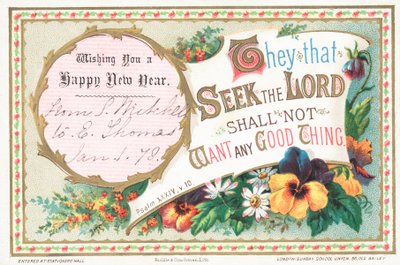 Wishing you a
Happy New Year.
From S. Mitchell
to E. Thomas
Jan 1. 78.
They that
SEEK THE LORD
SHALL NOT
WANT ANY GOOD THING.
Psalm XXXIV. v 10
ENTERED AT STATIONERS' HALL
LONDON: SUNDAY SCHOOL UNION, 56, OLD BAILEY